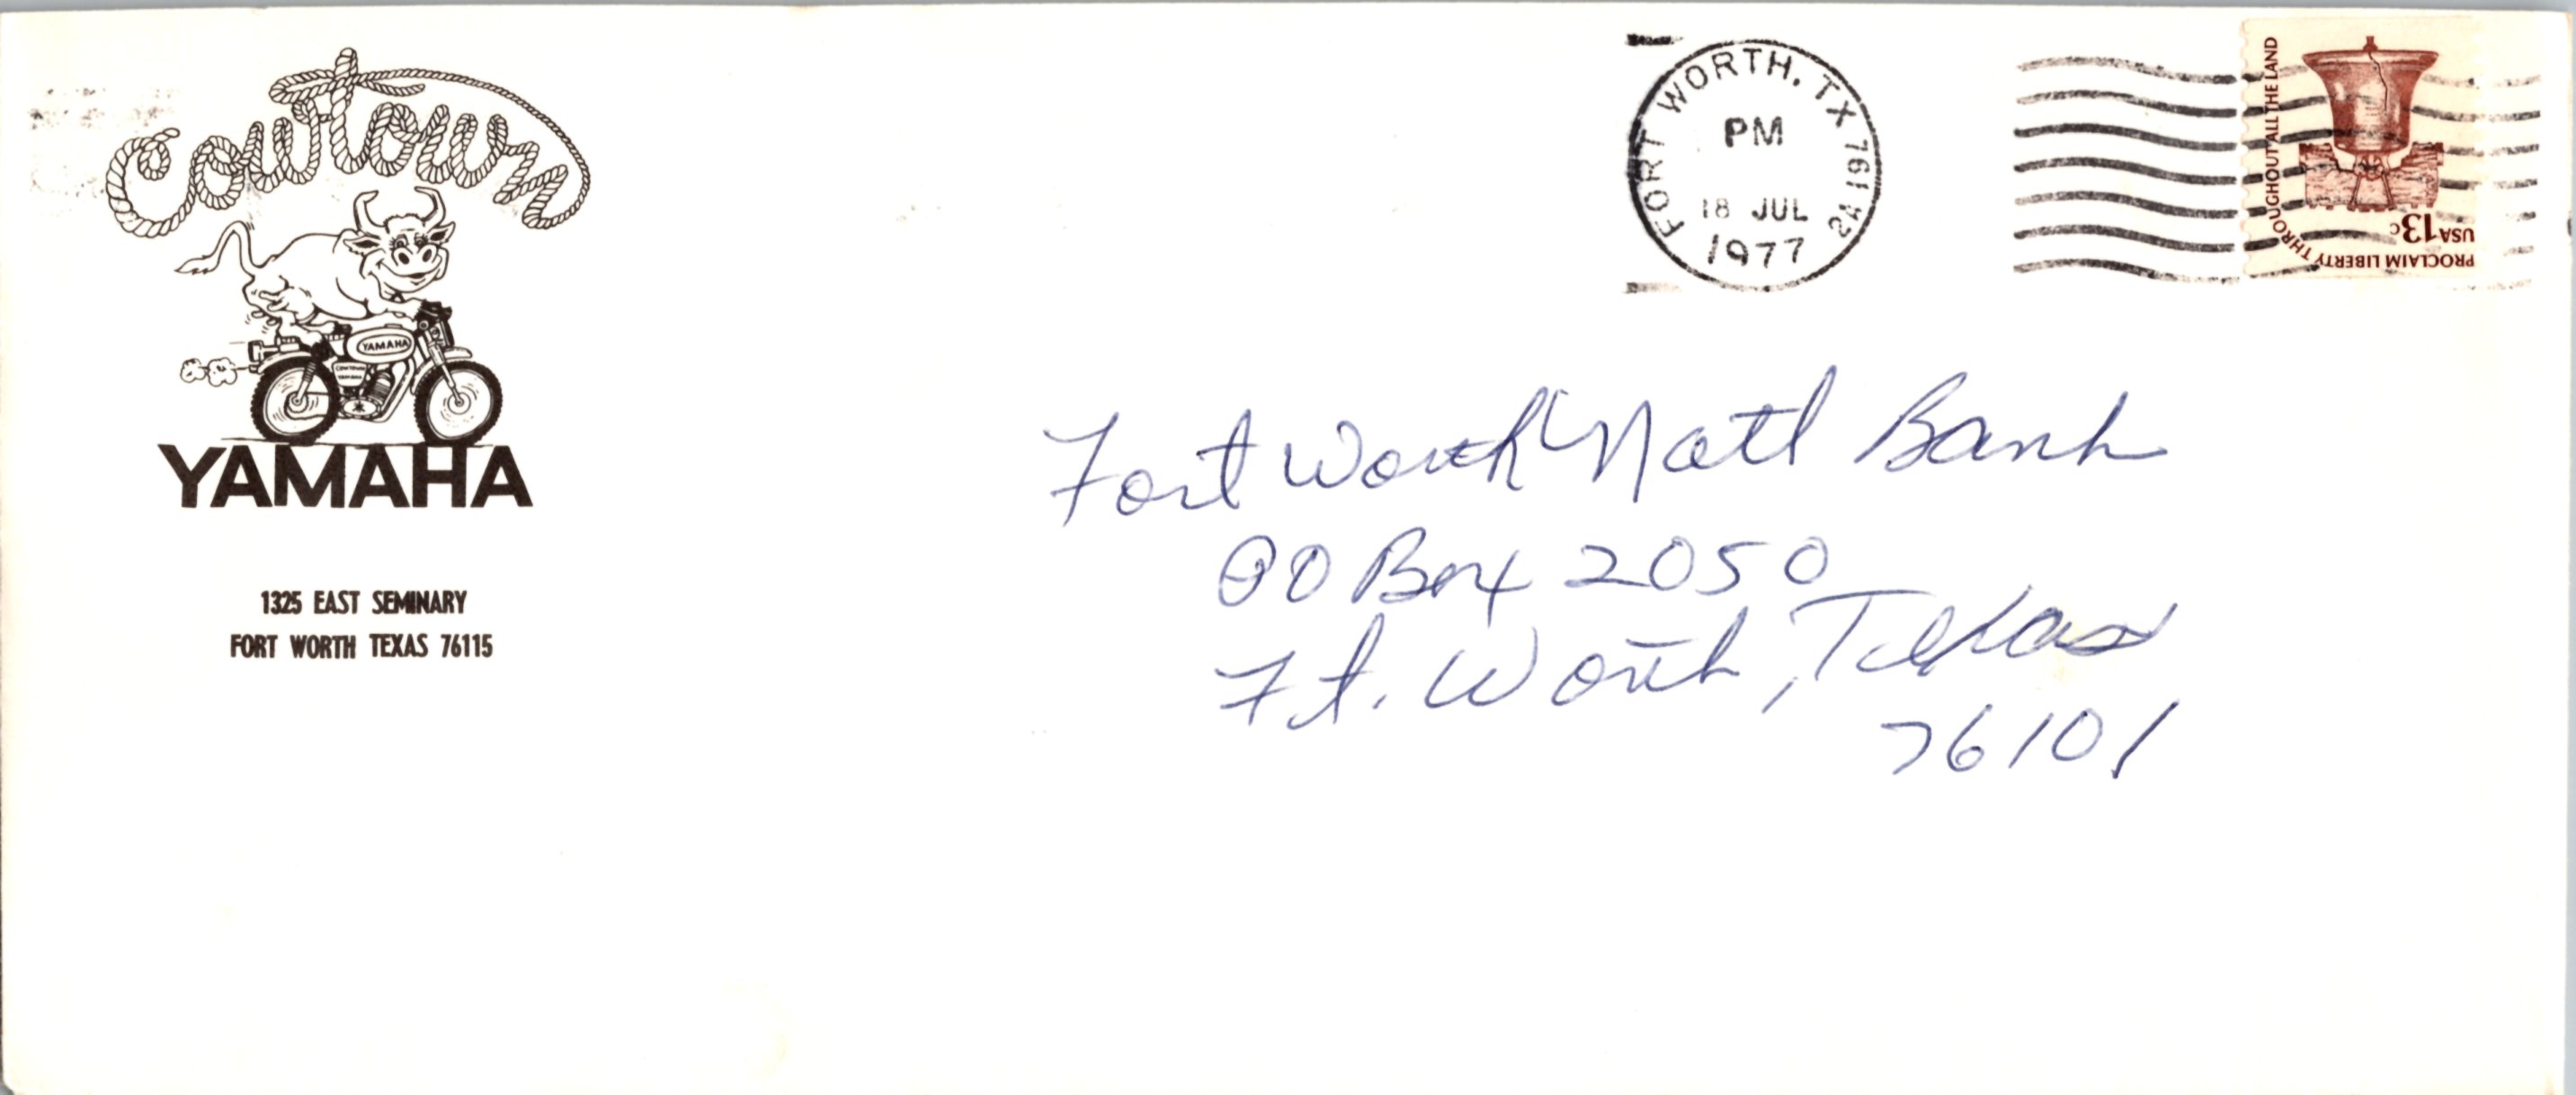 Cowtown
YAMAHA
COWTOWN
YAMAHA
YAMAHA
1325 EAST SEMINARY
FORT WORTH TEXAS 76115
FORT WORTH, TX 761
PM
18 JUL
1977
PROCLAIM LIBERTY THROUGHOUT ALL THE LAND
USA 13c
Fort Worth Natl Bank
PO Box 2050
Ft. Worth, Texas
76101